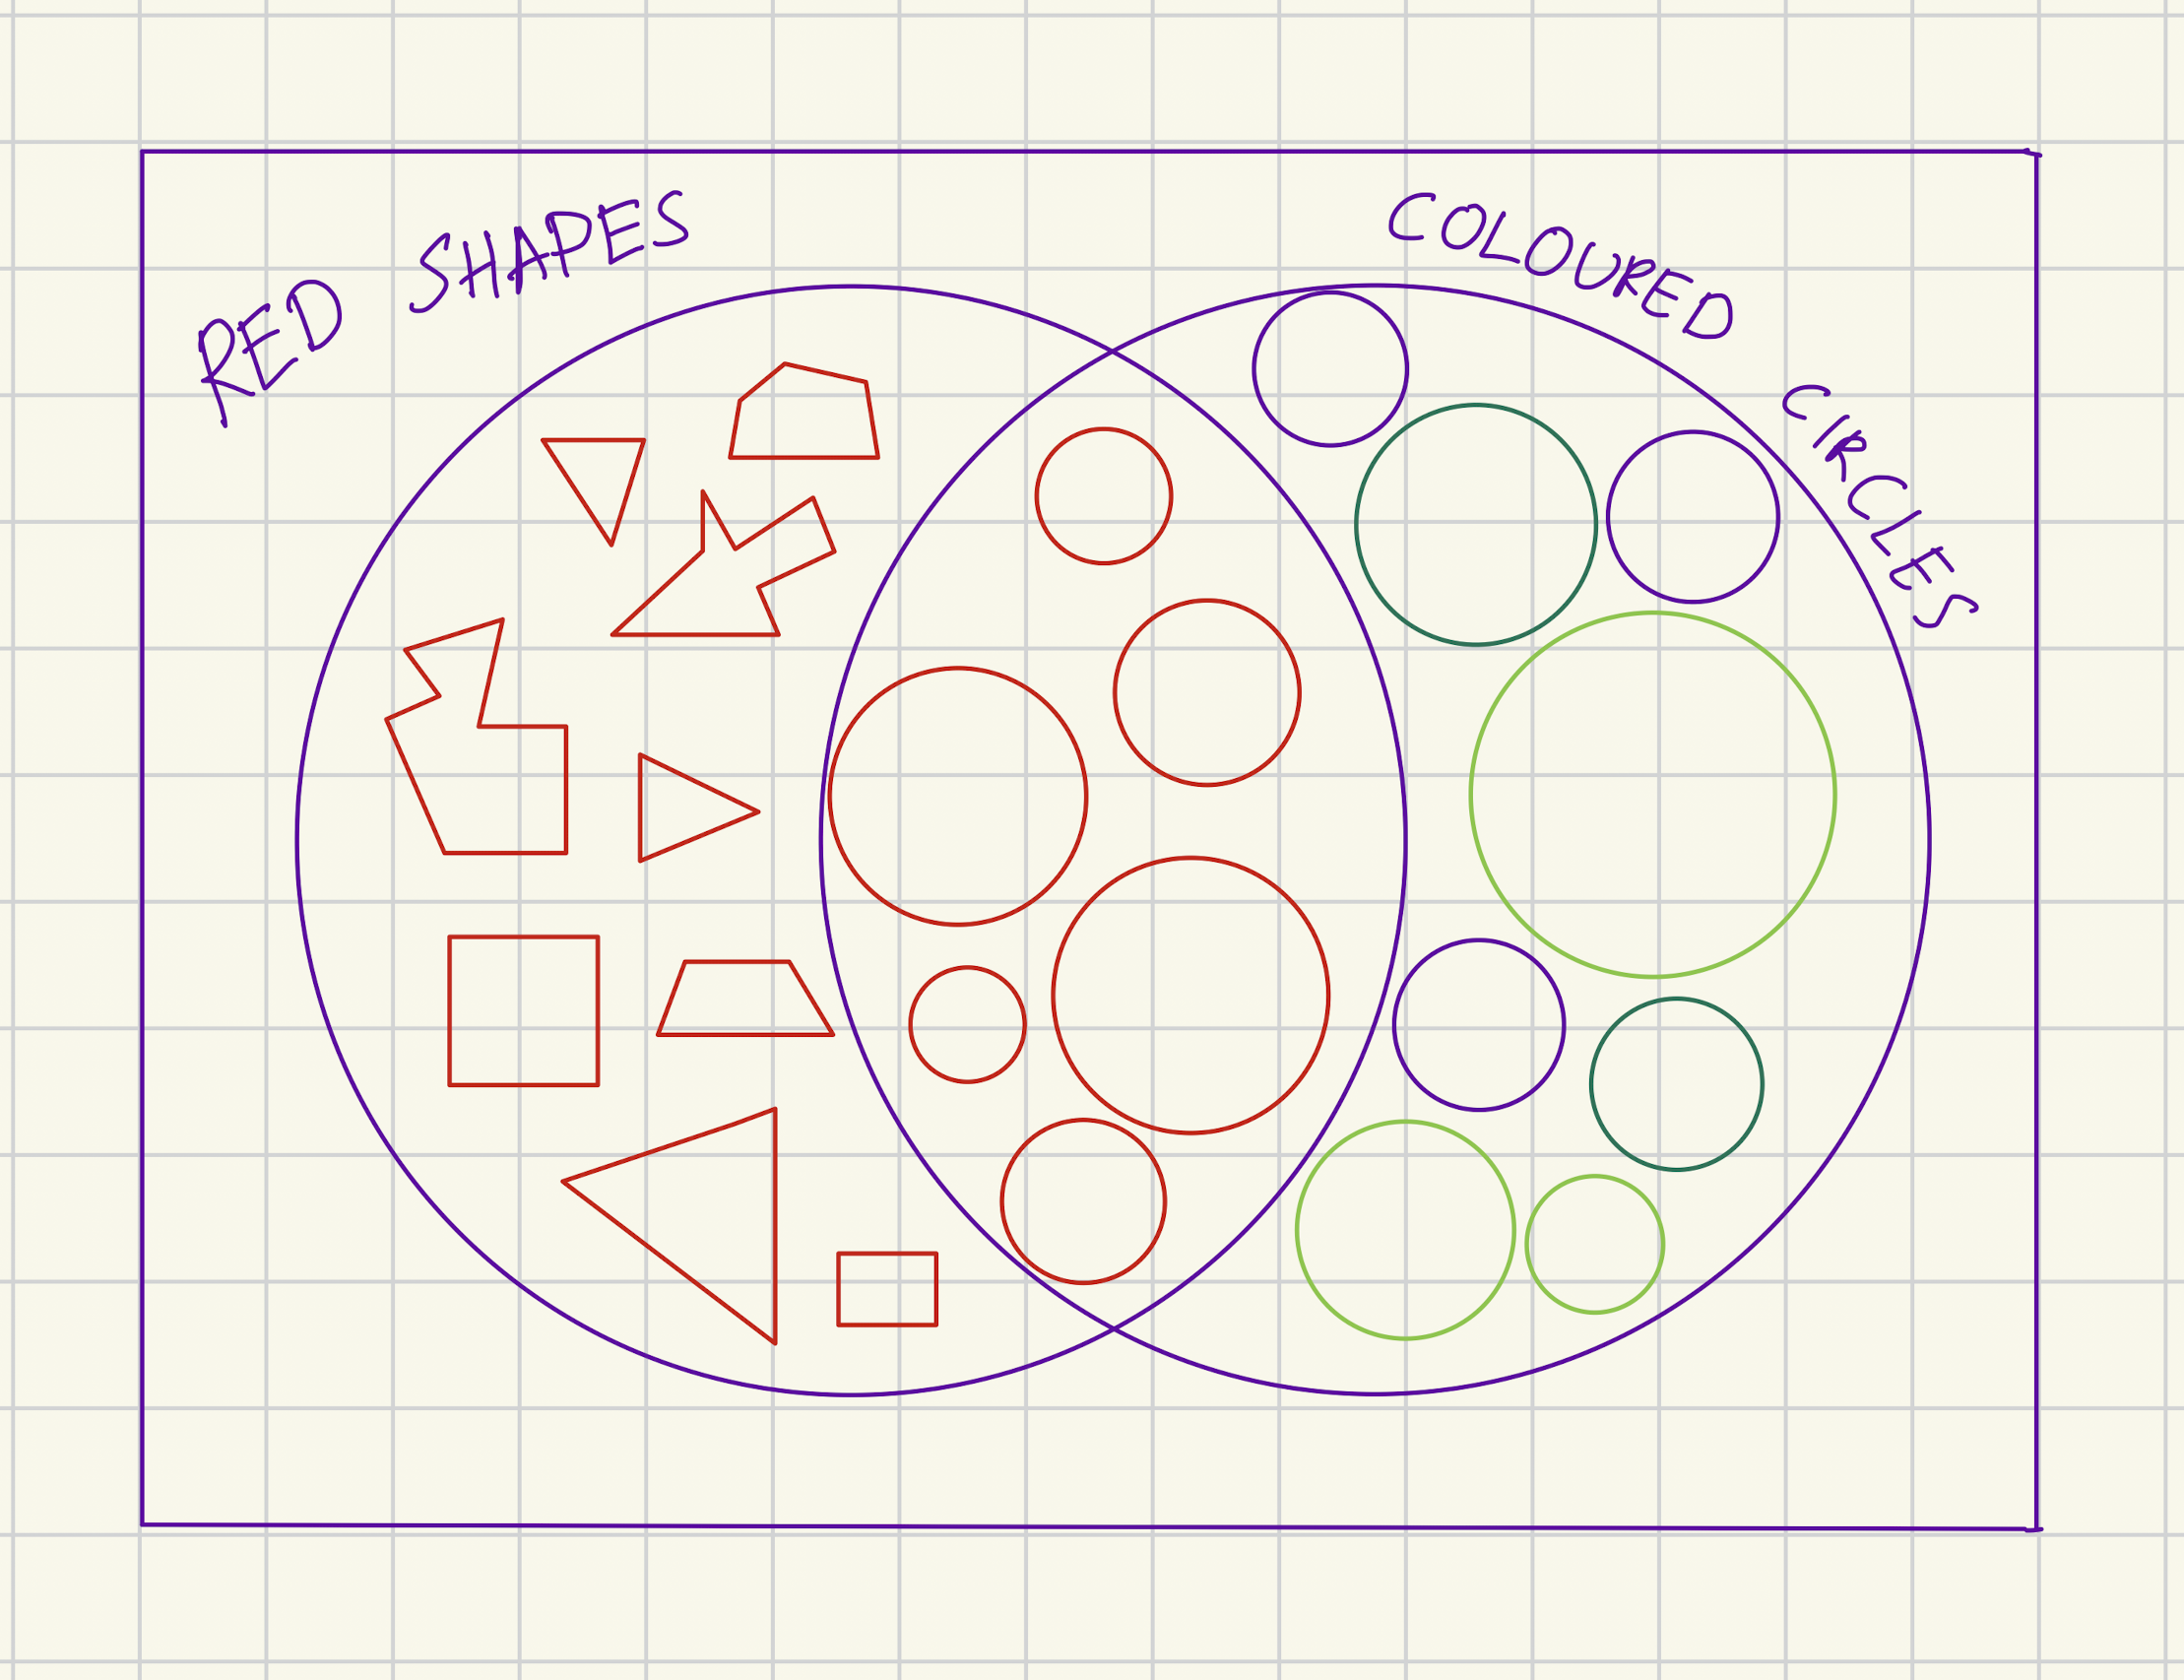 RED SHAPES
COLOURED CIRCLES